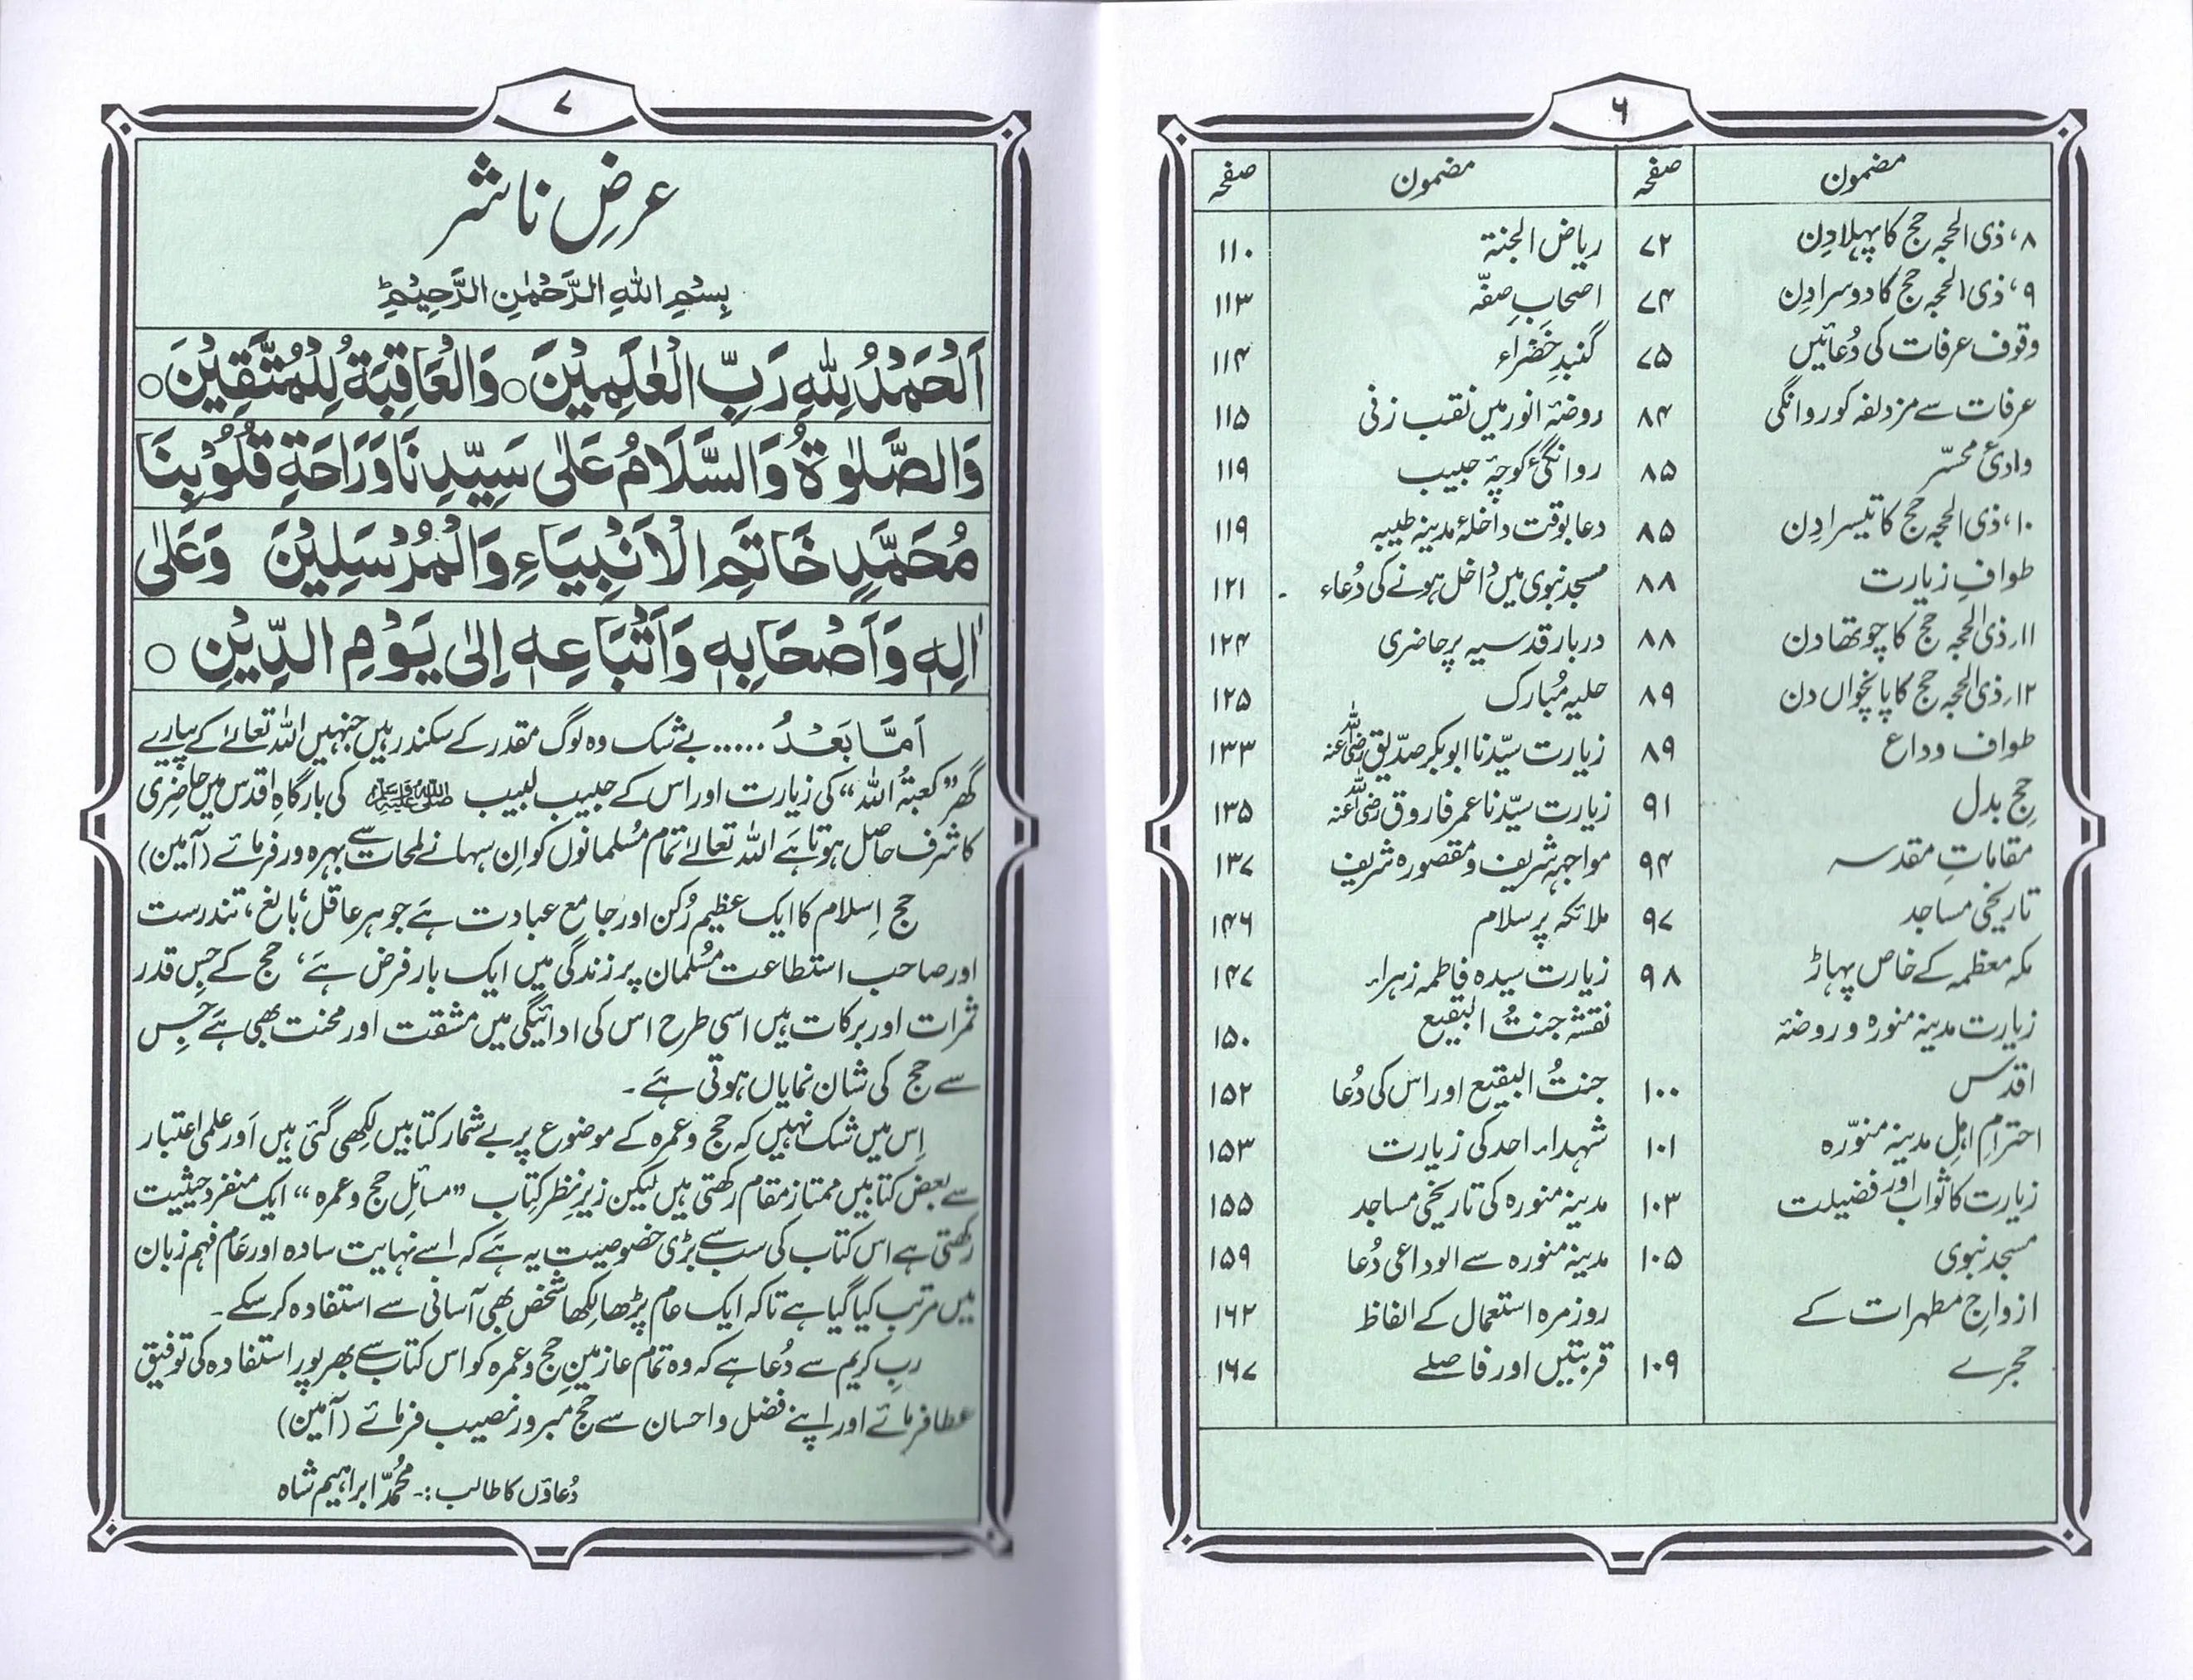 ۶
مضمون صفحہ مضمون صفحہ
۸، ذی الحجہ حج کا پہلا دِن ۷۲ ریاض الجنۃ ۱۱۰
۹، ذی الحجہ حج کا دوسرا دِن ۷۴ اصحابِ صفّہ ۱۱۳
وقوف عرفات کی دُعائیں ۷۵ گنبدِ خَضراء ۱۱۴
عرفات سے مزدلفہ کو روانگی ۸۴ روضۂ انور میں نقب زنی ۱۱۵
وادیٔ محسّر ۸۵ روانگیٔ کوچۂ حبیب ۱۱۹
۱۰، ذی الحجہ حج کا تیسرا دِن ۸۵ دعا بوقت داخلۂ مدینہ طیبہ ۱۱۹
طوافِ زیارت ۸۸ مسجد نبوی میں داخل ہونے کی دُعاء ۱۲۱
۱۱۔ ذی الحجہ حج کا چوتھا دن ۸۸ دربار قدسیہ پر حاضری ۱۲۴
۱۲۔ ذی الحجہ حج کا پانچواں دن ۸۹ حلیہ مُبارک ۱۲۵
طواف وداع ۸۹ زیارت سیّدنا ابوبکر صدّیق رضی اللہ عنہ ۱۳۳
حِج بدل ۹۱ زیارت سیّدنا عمر فاروق رضی اللہ عنہ ۱۳۵
مقاماتِ مقدسہ ۹۴ مواجہہ شریف و مقصورہ شریف ۱۳۷
تاریخی مساجد ۹۷ ملائکہ پر سلام ۱۴۶
مکہ معظمہ کے خاص پہاڑ ۹۸ زیارت سیدہ فاطمہ زہراء ۱۴۷
زیارت مدینہ منورہ و روضۂ نقشہ جنتُ البقیع ۱۵۰
اقدس ۱۰۰ جنتُ البقیع اور اس کی دُعا ۱۵۲
احترامِ اہلِ مدینہ منوّرہ ۱۰۱ شہداء احد کی زیارت ۱۵۳
زیارت کا ثواب اور فضیلت ۱۰۳ مدینہ منورہ کی تاریخی مساجد ۱۵۵
مسجد نبوی ۱۰۵ مدینہ منورہ سے الوداعی دُعا ۱۵۹
ازواجِ مطہرات کے روزمرہ استعمال کے الفاظ ۱۶۲
حجرے ۱۰۹ قربتیں اور فاصلے ۱۶۷
۷
عرضِ ناشر
بِسْمِ اللهِ الرَّحْمٰنِ الرَّحِيْمِ ط
اَلْحَمْدُ لِلّٰهِ رَبِّ الْعٰلَمِيْنَ ○ وَالْعَاقِبَةُ لِلْمُتَّقِيْنَ ○
وَالصَّلٰوةُ وَالسَّلَامُ عَلٰى سَيِّدِنَا وَرَاحَةِ قُلُوْبِنَا
مُحَمَّدٍ خَاتَمِ الْاَنْبِيَاءِ وَالْمُرْسَلِيْنَ وَعَلٰى
اٰلِهٖ وَاَصْحَابِهٖ وَاَتْبَاعِهٖ اِلٰى يَوْمِ الدِّيْنِ ○
اَمَّا بَعْدُ ..... بے شک وہ لوگ مقدر کے سکندر ہیں جنہیں اللہ تعالےٰ کے پیارے
گھر ”کعبتہُ اللہ“ کی زیارت اور اس کے حبیب لبیب ﷺ کی بارگاہِ اقدس میں حاضِری
کا شرف حاصل ہوتا ہَے اللہ تعالےٰ تمام مُسلمانوں کو اِن سہانے لمحات سے بہرہ ور فرمائے (آمین)
حج اِسلام کا ایک عظیم رُکن اور جامع عبادت ہَے جو ہر عاقل، بالغ، تندرست
اور صاحب استطاعت مُسلمان پر زندگی میں ایک بار فرض ہَے، حج کے جِس قدر
ثمرات اور برکات ہیں اسی طرح اس کی ادائیگی میں مشقت اور محنت بھی ہَے جِس
سے حج کی شان نمایاں ہوتی ہَے۔
اِس میں شک نہیں کہ حج و عمرہ کے موضوع پر بے شمار کتابیں لِکھی گئی ہیں اَور علمی اعتبار
سے بعض کتابیں ممتاز مقام رکھتی ہیں لیکن زیرِ نظر کِتاب ”مسائلِ حج و عمرہ“ ایک منفرد حیثیت
رکھتی ہے اس کتاب کی سب سے بڑی خصوصیت یہ ہَے کہ اسے نہایت سادہ اور عَام فہم زبان
میں مرتب کیا گیا ہے تاکہ ایک عام پڑھا لِکھا شخص بھی آسانی سے استفادہ کر سکے۔
ربِ کریم سے دُعا ہے کہ وہ تمام عازمینِ حج و عمرہ کو اس کتاب سے بھرپور استفادہ کی توفیق
عطا فرمائے اور اپنے فضل و احسان سے حج مبرور نصیب فرمائے (آمین)
دُعاؤں کا طالب :۔ محُمّد ابراہیم شاہ